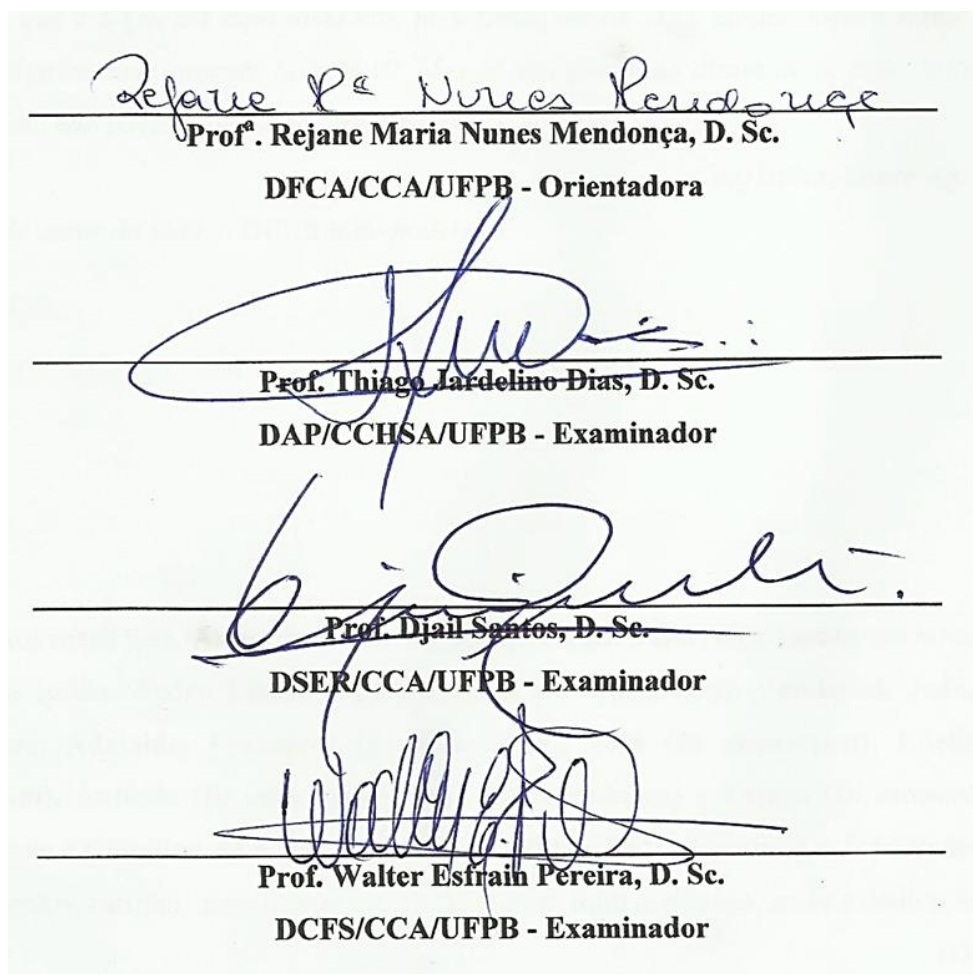 Rejane Mª Nunes Mendonça
Profª. Rejane Maria Nunes Mendonça, D. Sc.
DFCA/CCA/UFPB - Orientadora
Prof. Thiago Jardelino Dias, D. Sc.
DAP/CCHSA/UFPB - Examinador
Prof. Djail Santos, D. Sc.
DSER/CCA/UFPB - Examinador
Prof. Walter Esfrain Pereira, D. Sc.
DCFS/CCA/UFPB - Examinador